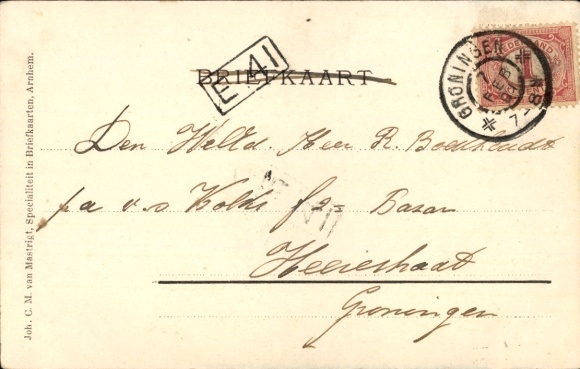 BRIEFKAART
E 41
GRONINGEN
7 FEB
7-8N
NEDERLAND
1
Den Weled. Heer R.
p/a v.s Bazar
Heerestraat
Groningen
Joh. C. M. van Mastrigt, Specialiteit in Briefkaarten, Arnhem.